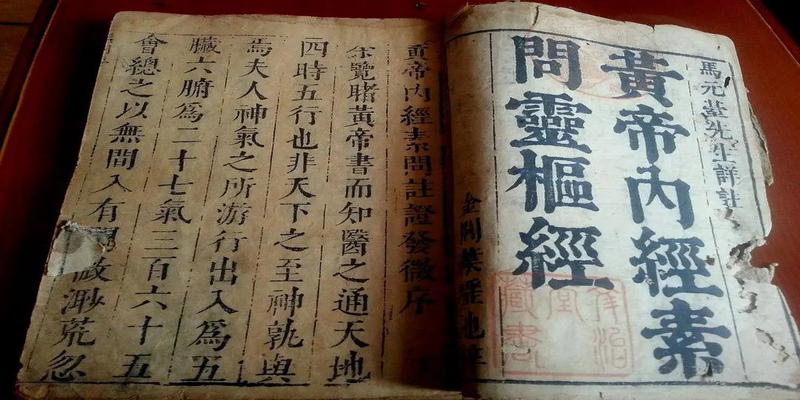 馬元臺先生詳註
黃帝內經素
問靈樞經
黃帝內經素問註證發微序
余覽睹黃帝書而知醫之通天地
四時五行也非天下之至神孰與
焉夫人神氣之所游行出入為五
臟六腑為二十七氣三百六十五
會總之以無間入有間微渺荒忽
藏書